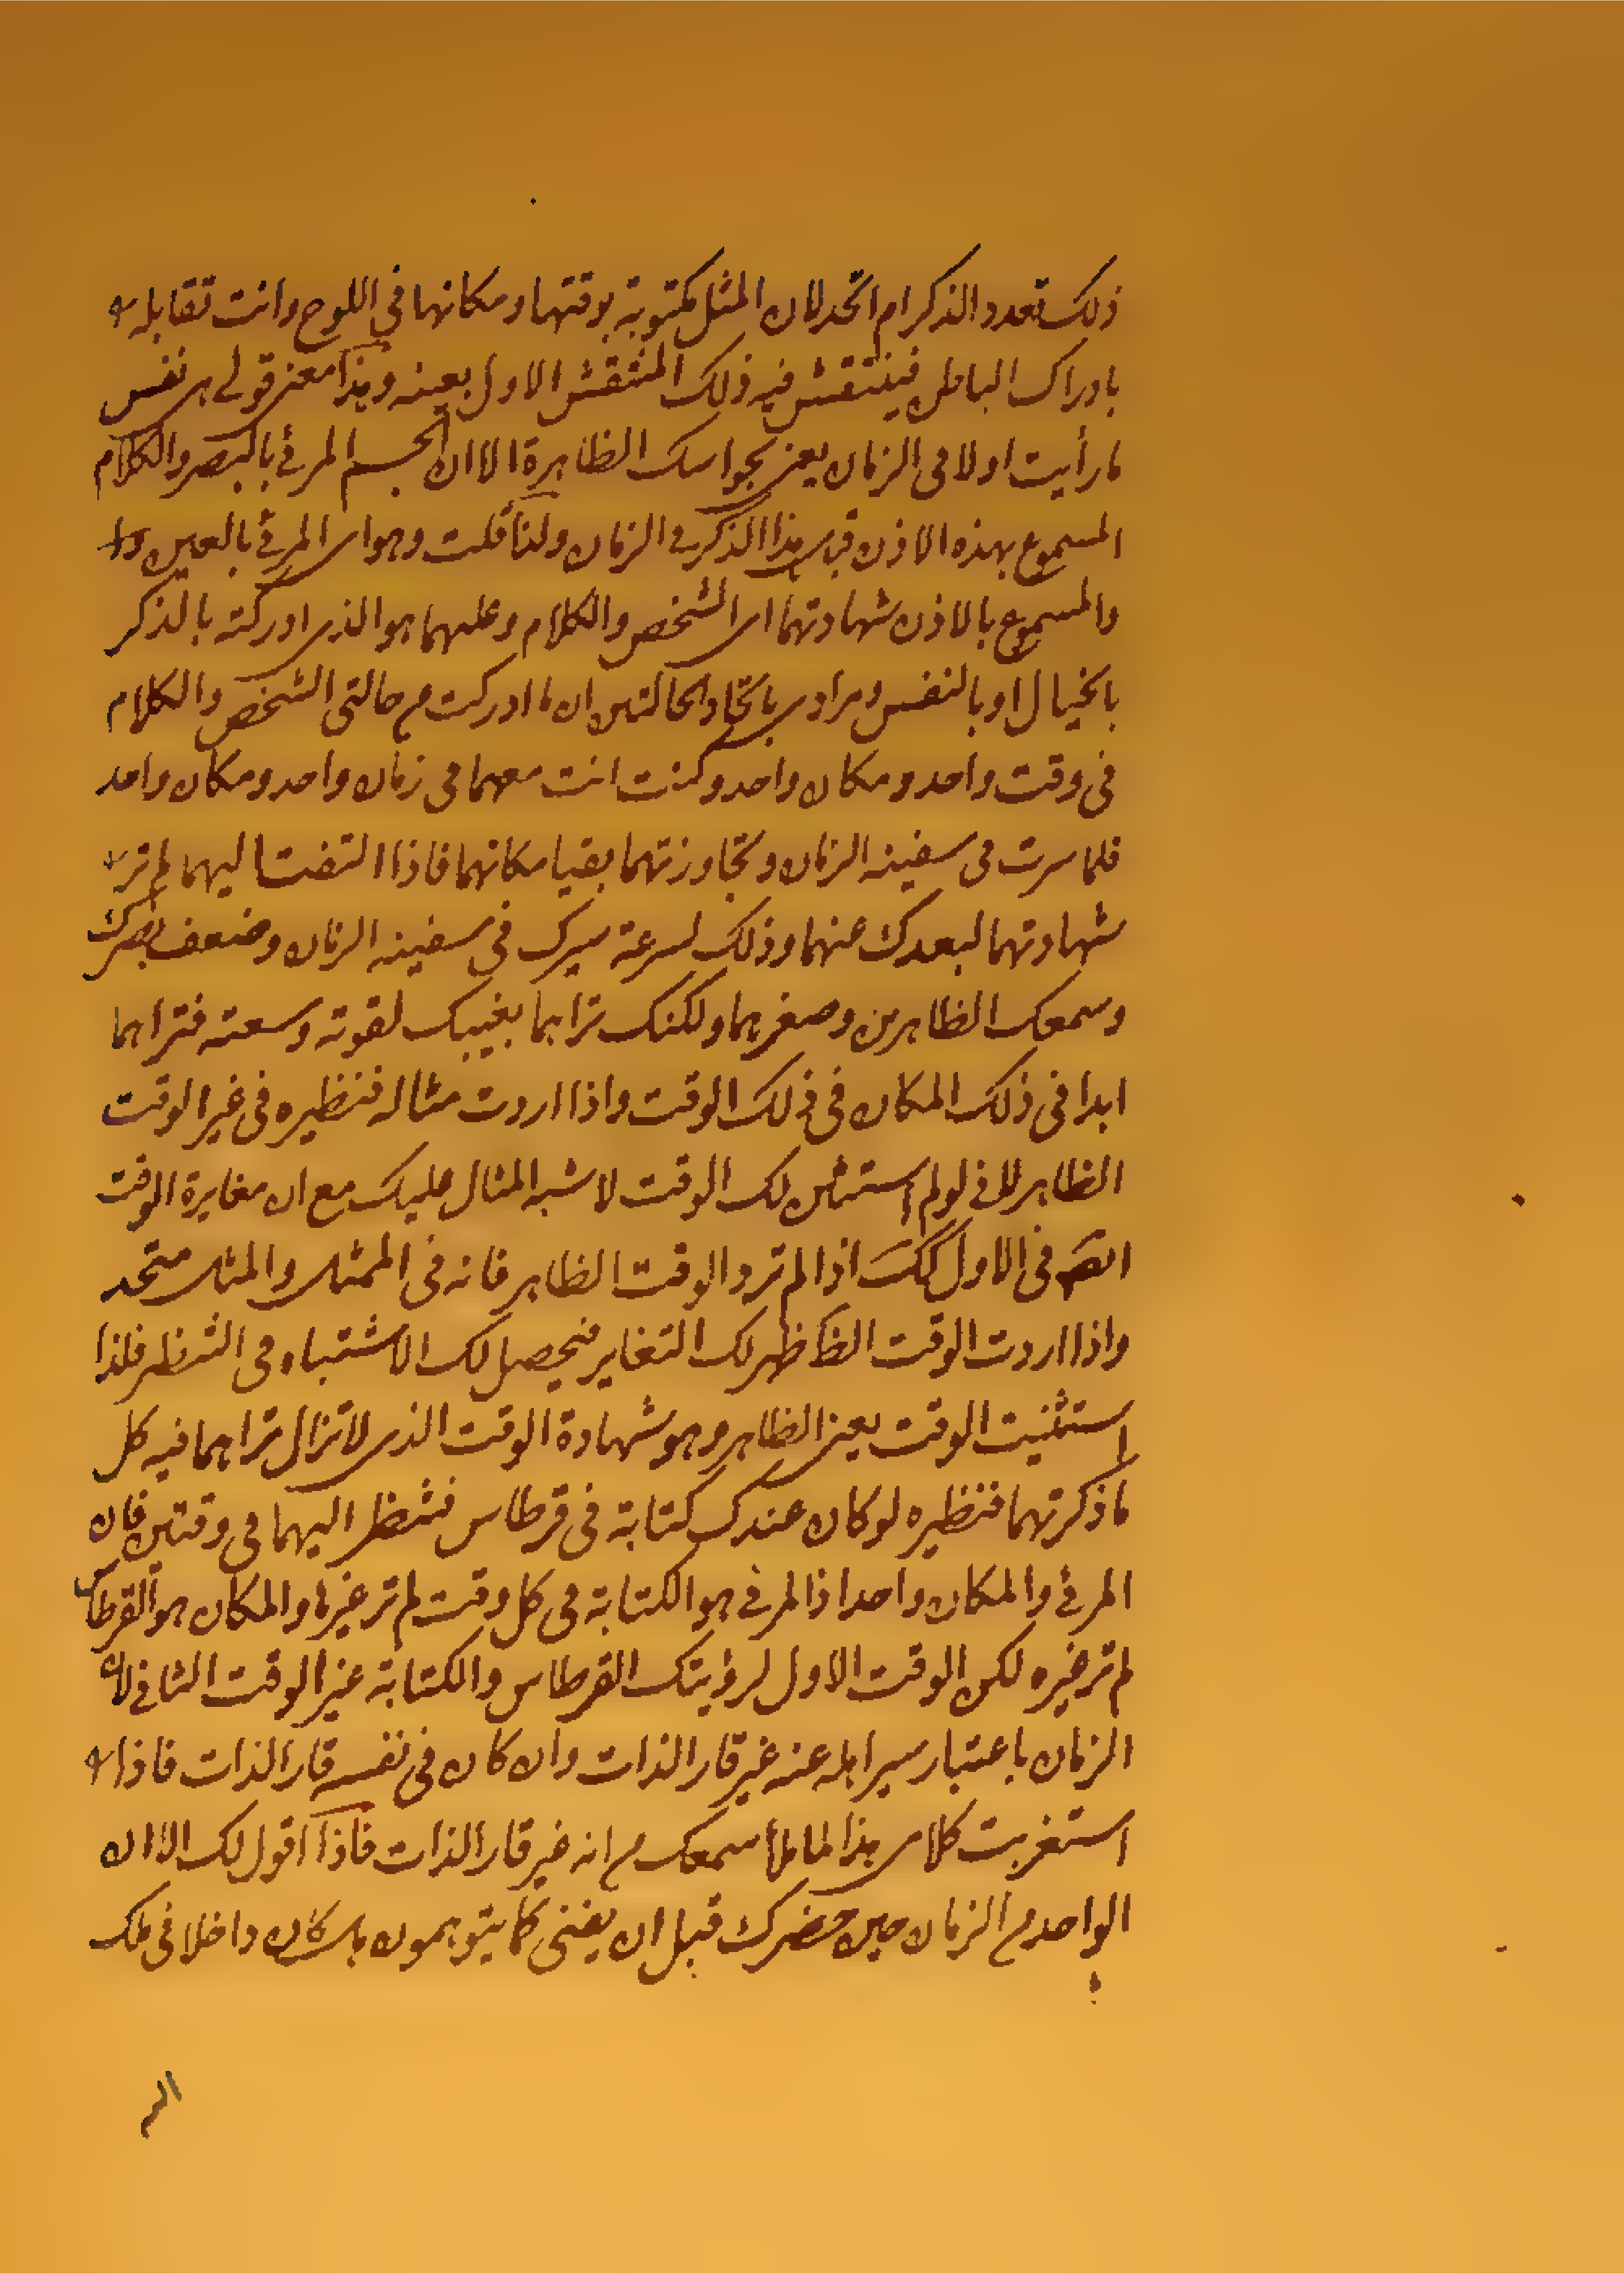 ذلك تعدد الذكر ام اتحد لان المثل مكتوبة بوقتها ومكانها في اللوح وانت تقابله
بادراك الباطن فينتقش فيه ذلك المنتقش الاول بعينه وهذا معنى قولي هي نفس
ما رأيت اولا في الزمان يعني بحواسك الظاهرة الا ان الجسم المرئي بالبصر والكلام
المسموع بهذه الاذن قبل هذا الذكر في الزمان ولذا قلت وهو اي المرئي بالعين
والمسموع بالاذن شهادتهما اي الشخص والكلام وعليهما هو الذي ادركته بالذكر
بالخيال او بالنفس ومرادي باتحاد الحالتين ان ما ادركت من حالتي الشخص والكلام
في وقت واحد ومكان واحد وكنت انت معهما في زمان واحد ومكان واحد
فلما سرت في سفينة الزمان وتجاوزتهما بقيا مكانهما فاذا التفت اليهما لم تر
شهادتهما لبعدك عنهما وذلك لسرعة سيرك في سفينة الزمان وضعف بصرك
وسمعك الظاهرين وصغرهما ولكنك تراهما بغيبك لقوته وسعته فتراهما
ابدا في ذلك المكان في ذلك الوقت واذا اردت مثاله فنظيره في غير الوقت
الظاهر لاني لو لم استثن لك الوقت لاشبه المثال عليك مع ان مغايرة الوقت
في الاول اذا لم ترد الوقت الظاهر فانه في الممثل والمثل متحد
واذا اردت الوقت الظا ظهر لك التغاير فيحصل لك الاشتباه في النظر فلذا
استثنيت الوقت يعني الظاهر وهو شهادة الوقت الذي لا تزال تراهما فيه كل
ما ذكرتهما فنظيره لو كان عندك كتابة في قرطاس فتنظر اليهما في وقتين فان
المرئي والمكان واحد اذ المرئي هو الكتابة في كل وقت لم تر غيرها والمكان هو القرطاس
لم تر غيره لكن الوقت الاول لرؤيتك القرطاس والكتابة غير الوقت الثاني لان
الزمان باعتبار سير اهله عنه غير قار الذات وان كان في نفسه قار الذات فاذا
استغربت كلامي هذا لما ملأ سمعك من انه غير قار الذات فاذا اقول لك الا ان
الواحد من الزمان حين حضرك قبل ان يفنى كما يتوهمون ما كان داخلا في ملك